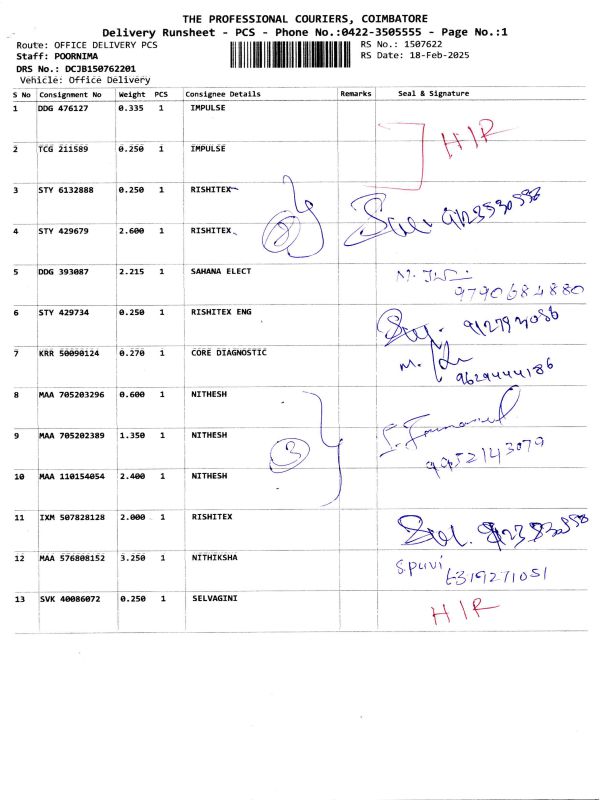 THE PROFESSIONAL COURIERS, COIMBATORE
Delivery Runsheet - PCS - Phone No.:0422-3505555 - Page No.:1
Route: OFFICE DELIVERY PCS
RS No.: 1507622
Staff: POORNIMA
RS Date: 18-Feb-2025
DRS No.: DCJB150762201
Vehicle: Office Delivery
S No Consignment No Weight PCS Consignee Details Remarks Seal & Signature
1 DDG 476127 0.335 1 IMPULSE
H/R
2 TCG 211589 0.250 1 IMPULSE
3 STY 6132888 0.250 1 RISHITEX
4 STY 429679 2.600 1 RISHITEX
5 DDG 393087 2.215 1 SAHANA ELECT
9790684880
6 STY 429734 0.250 1 RISHITEX ENG
7 KRR 50090124 0.270 1 CORE DIAGNOSTIC
9629444186
8 MAA 705203296 0.600 1 NITHESH
9 MAA 705202389 1.350 1 NITHESH
3
9952143079
10 MAA 110154054 2.400 1 NITHESH
11 IXM 507828128 2.000 1 RISHITEX
12 MAA 576808152 3.250 1 NITHIKSHA
S.puvi
13 SVK 40086072 0.250 1 SELVAGINI
H/R